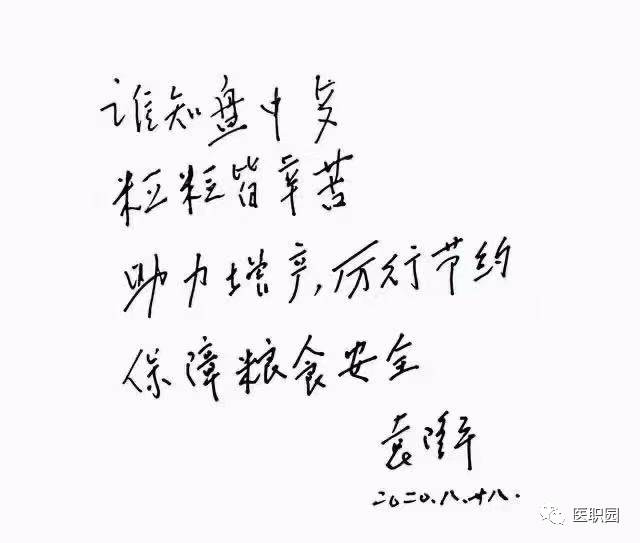 谁知盘中歺
粒粒皆辛苦
助力增产,厉行节约
保障粮食安全
袁隆平
二〇二〇.八.廿八.
医职园